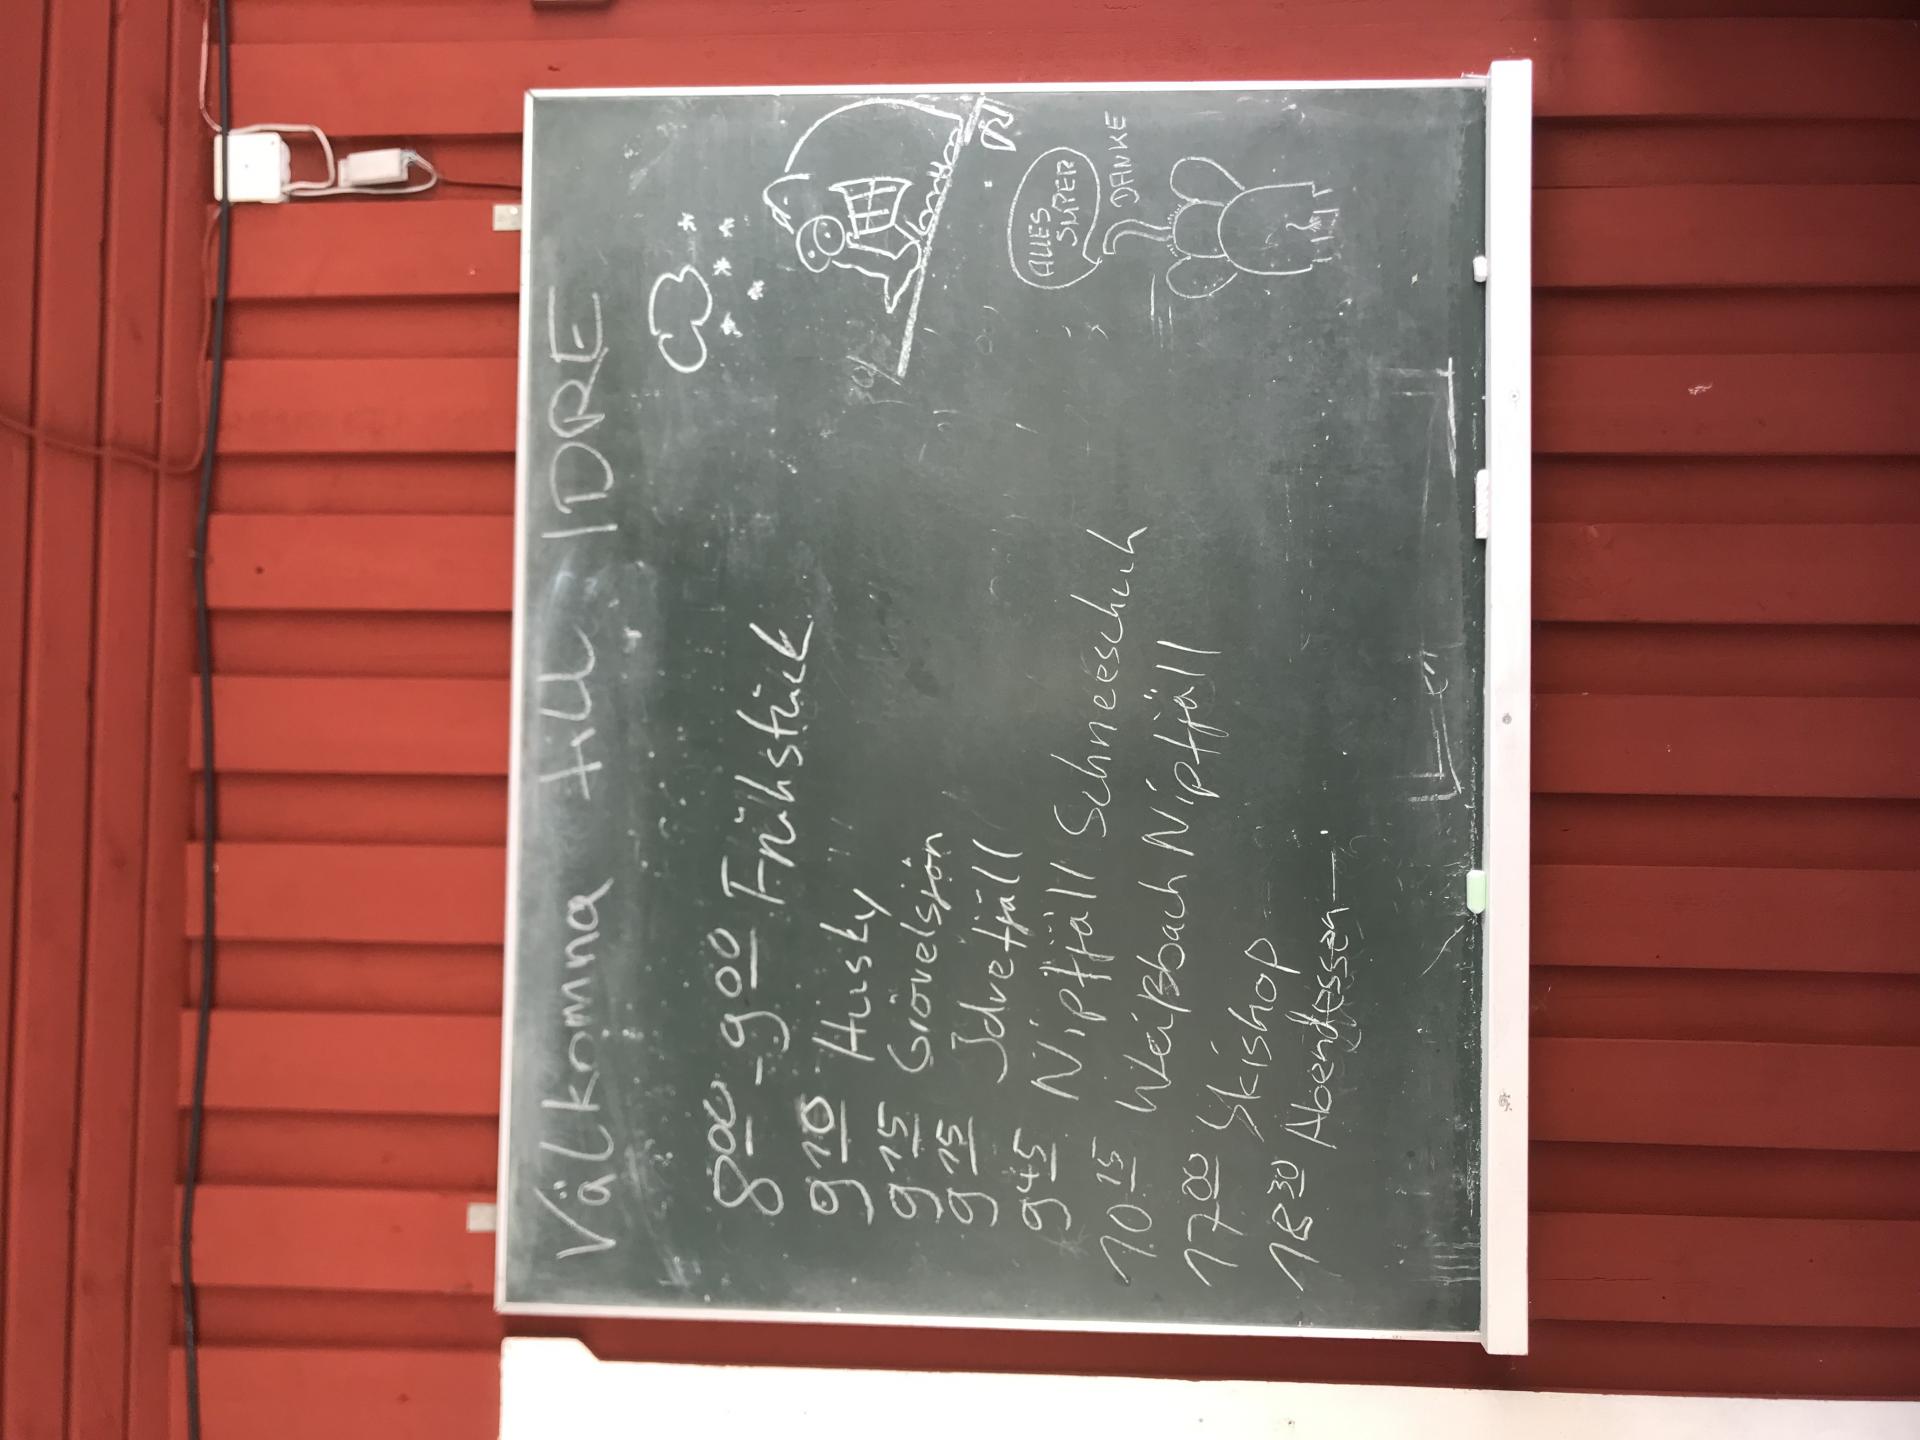 Välkomna till IDRE
8 00 - 9 00 Frühstück
9 10 Husky
9 15 Grövelsjön
9 15 Idrefjäll
9 45 Nipfjäll Schneeschuh
10 15 Weißbach Nipfjäll
17 00 Skishop
18 30 Abendessen
ALLES
SUPER
DANKE